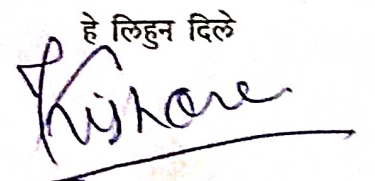 हे लिहुन दिले
Kishore